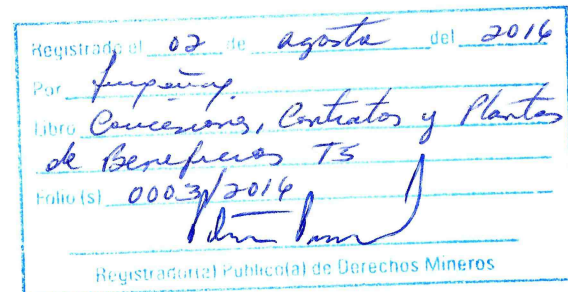 Registrado el 02 de agosto del 2016
Por
Libro Concesiones, Contratos y Plantas
de Beneficios T5
Folio (s) 0003/2016
Registrador(a) Publico(a) de Derechos Mineros